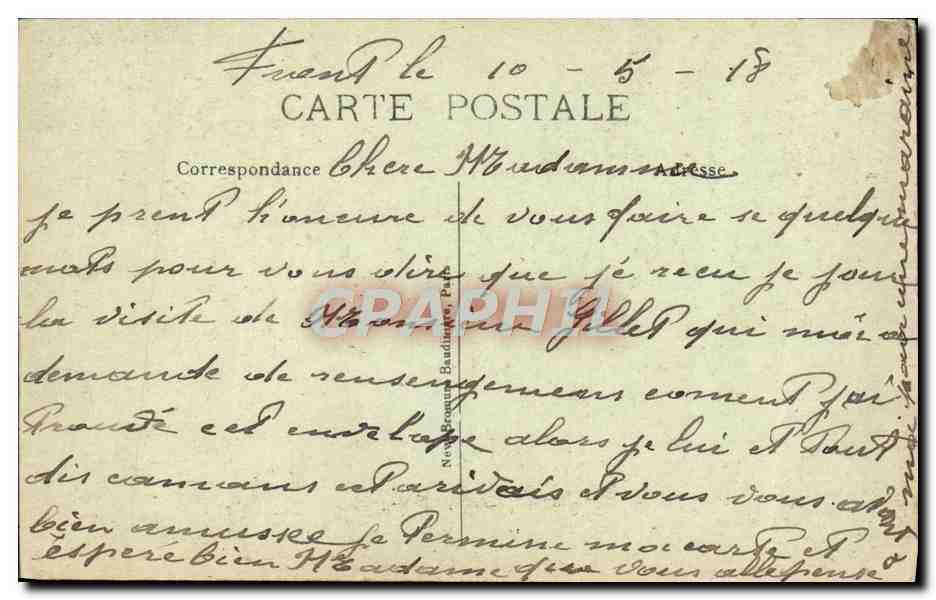 Front le 10 - 5 - 18
CARTE POSTALE
Correspondance Chere Madamme Adresse
je prent l'honeure de vous faire se quelque
mots pour vous dire que jé recu je jour
la visite de Monsieur Gillet qui m'a
demande de rensengemens coment j'ai
trouvé cet envelope alors je lui et tout
dis comans et arivais et vous vous
bien amusee je termine ma carte et
espere bien Madame que vous alle pense
a moi pour une maraine
New Bromure Baudiniere, Paris
CRAPHIL